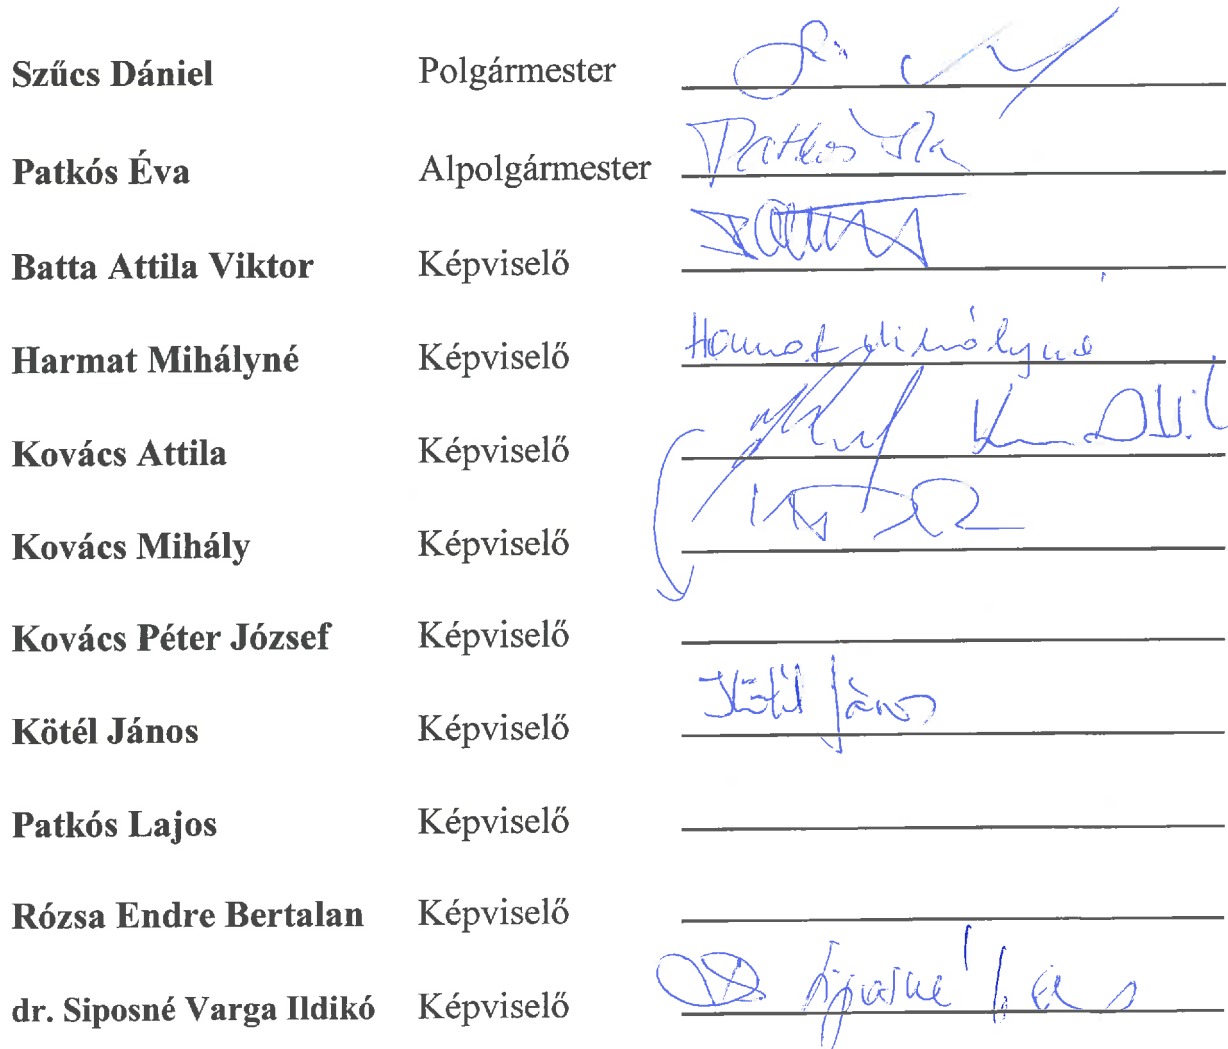 Szűcs Dániel Polgármester
Patkós Éva Alpolgármester Patkós
Batta Attila Viktor Képviselő
Harmat Mihályné Képviselő Harmat Mihályné
Kovács Attila Képviselő
Kovács Mihály Képviselő
Kovács Péter József Képviselő
Kötél János Képviselő Kötél János
Patkós Lajos Képviselő
Rózsa Endre Bertalan Képviselő
dr. Siposné Varga Ildikó Képviselő Siposné